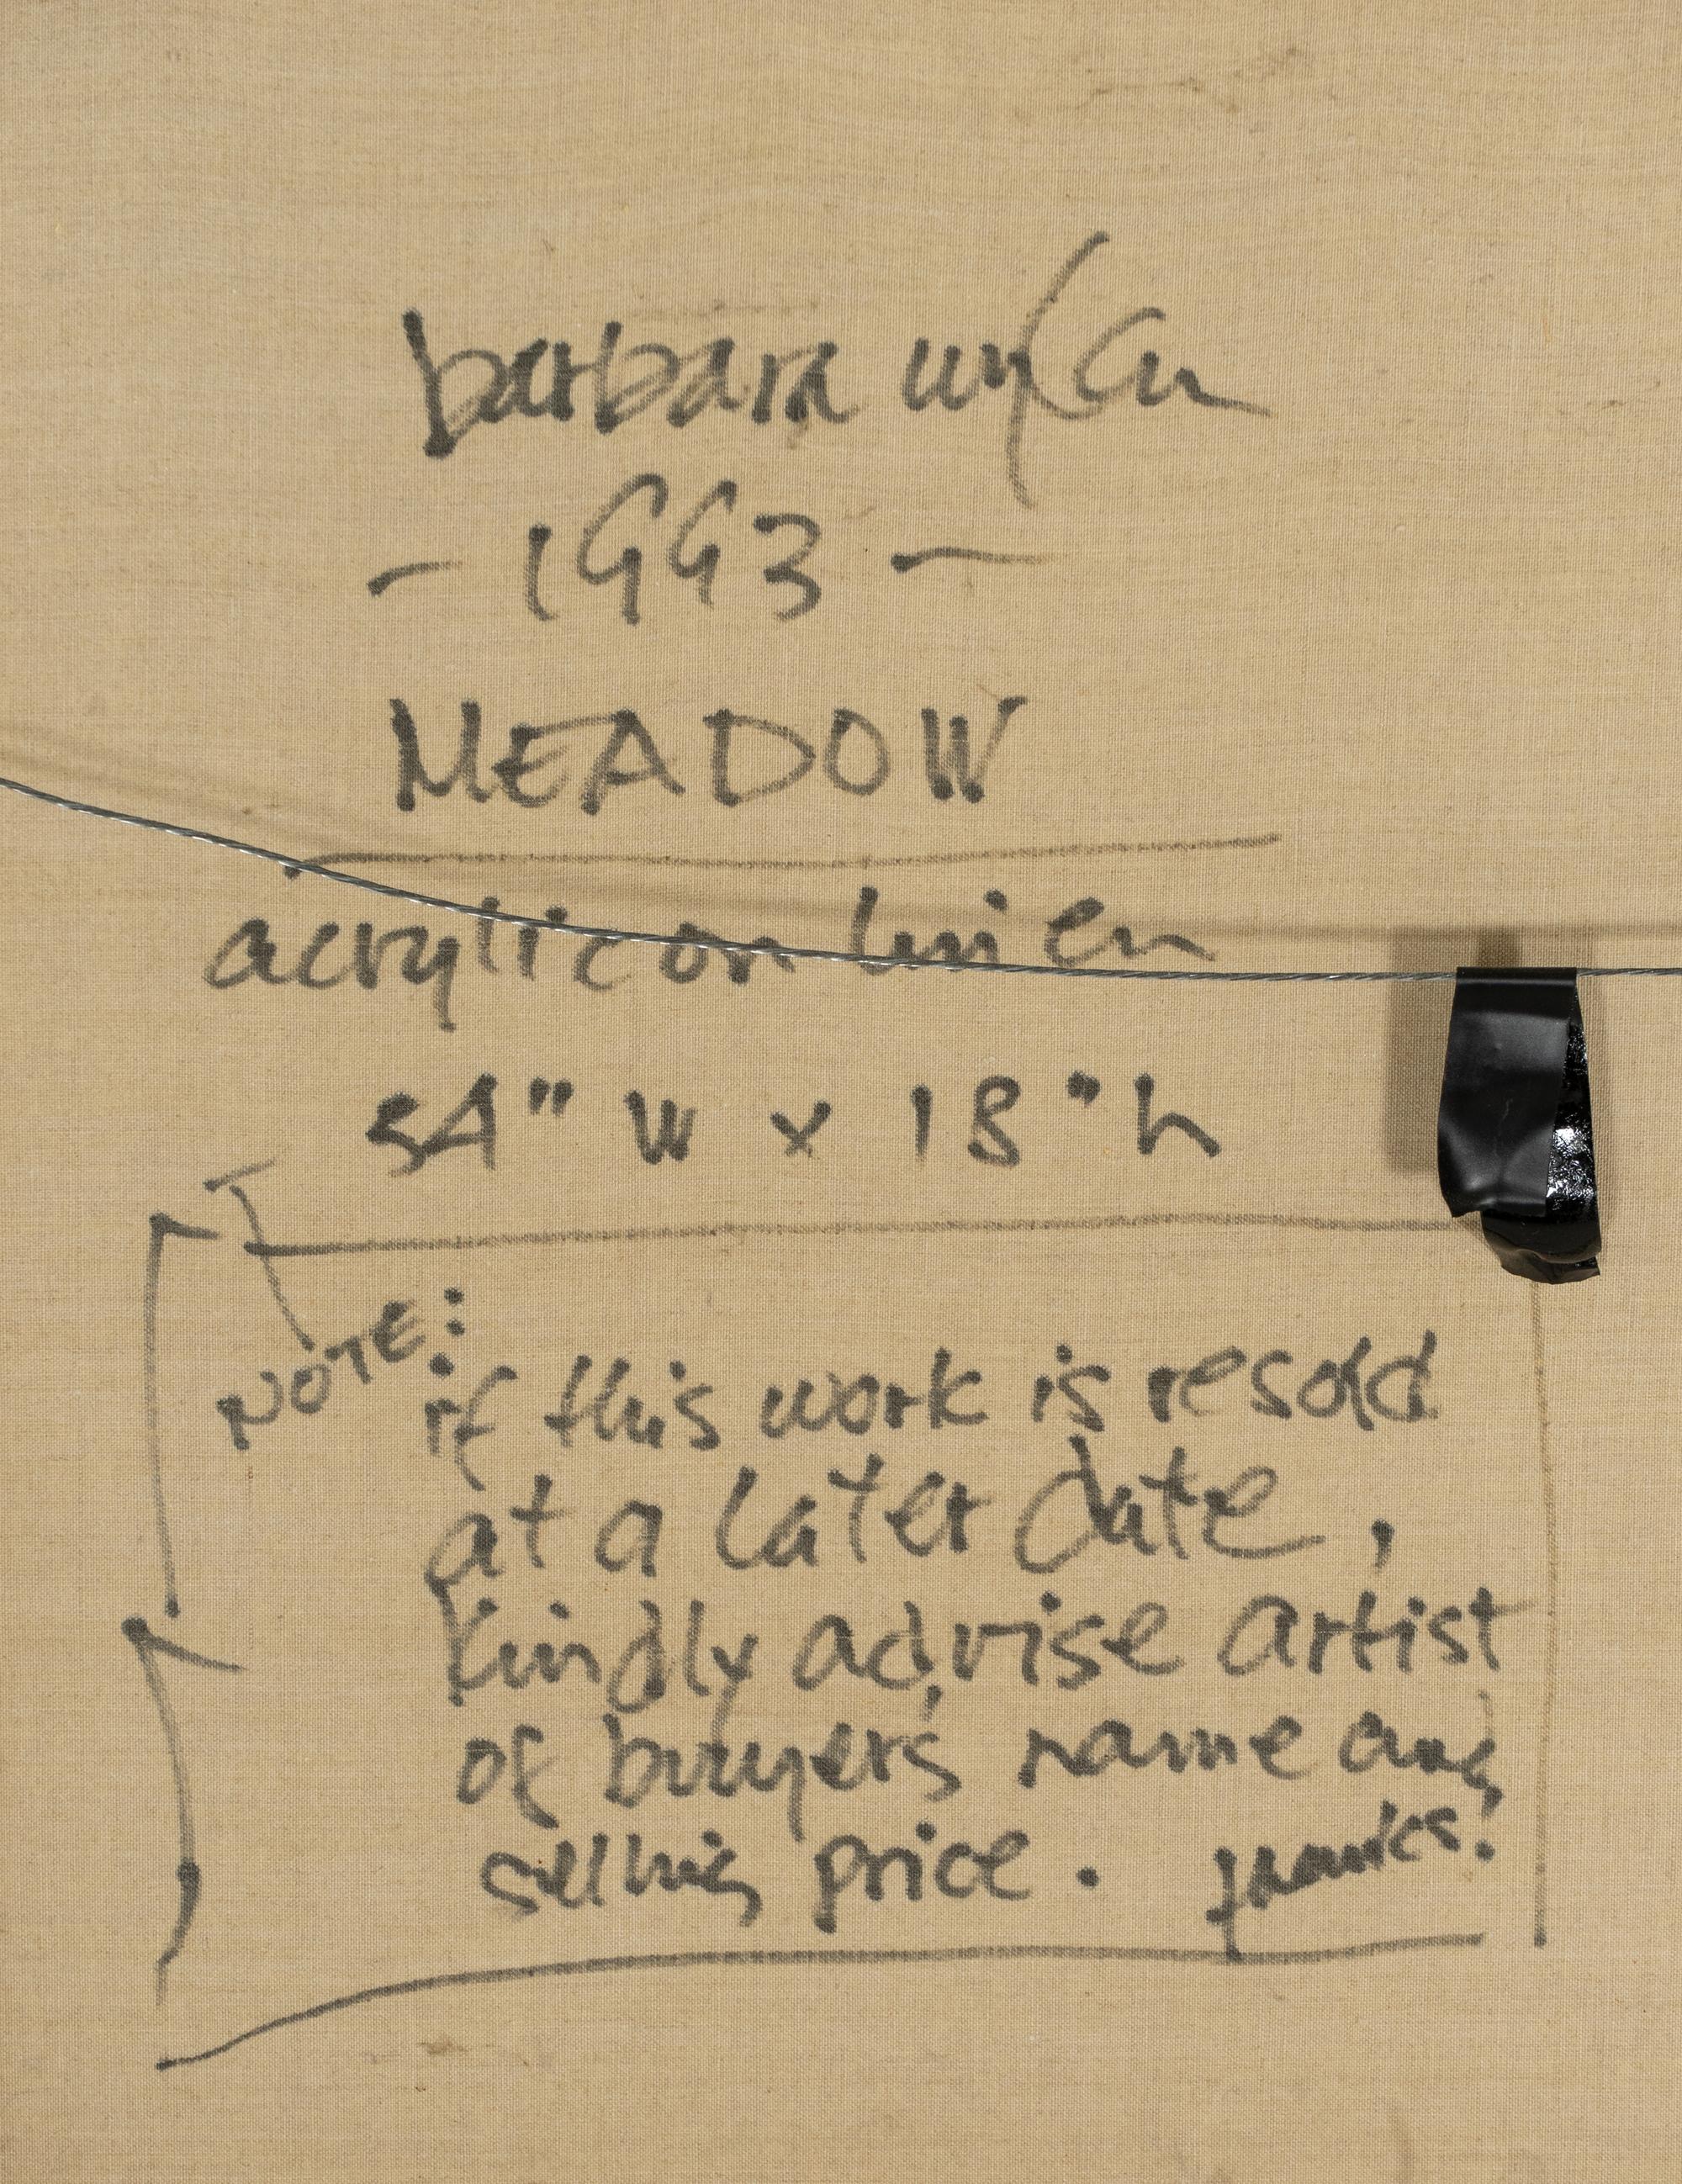 barbara wylan
- 1993 -
MEADOW
acrylic on linen
54" W x 18" h
NOTE:
if this work is resold
at a later date,
kindly advise artist
of buyer's name and
selling price. thanks!